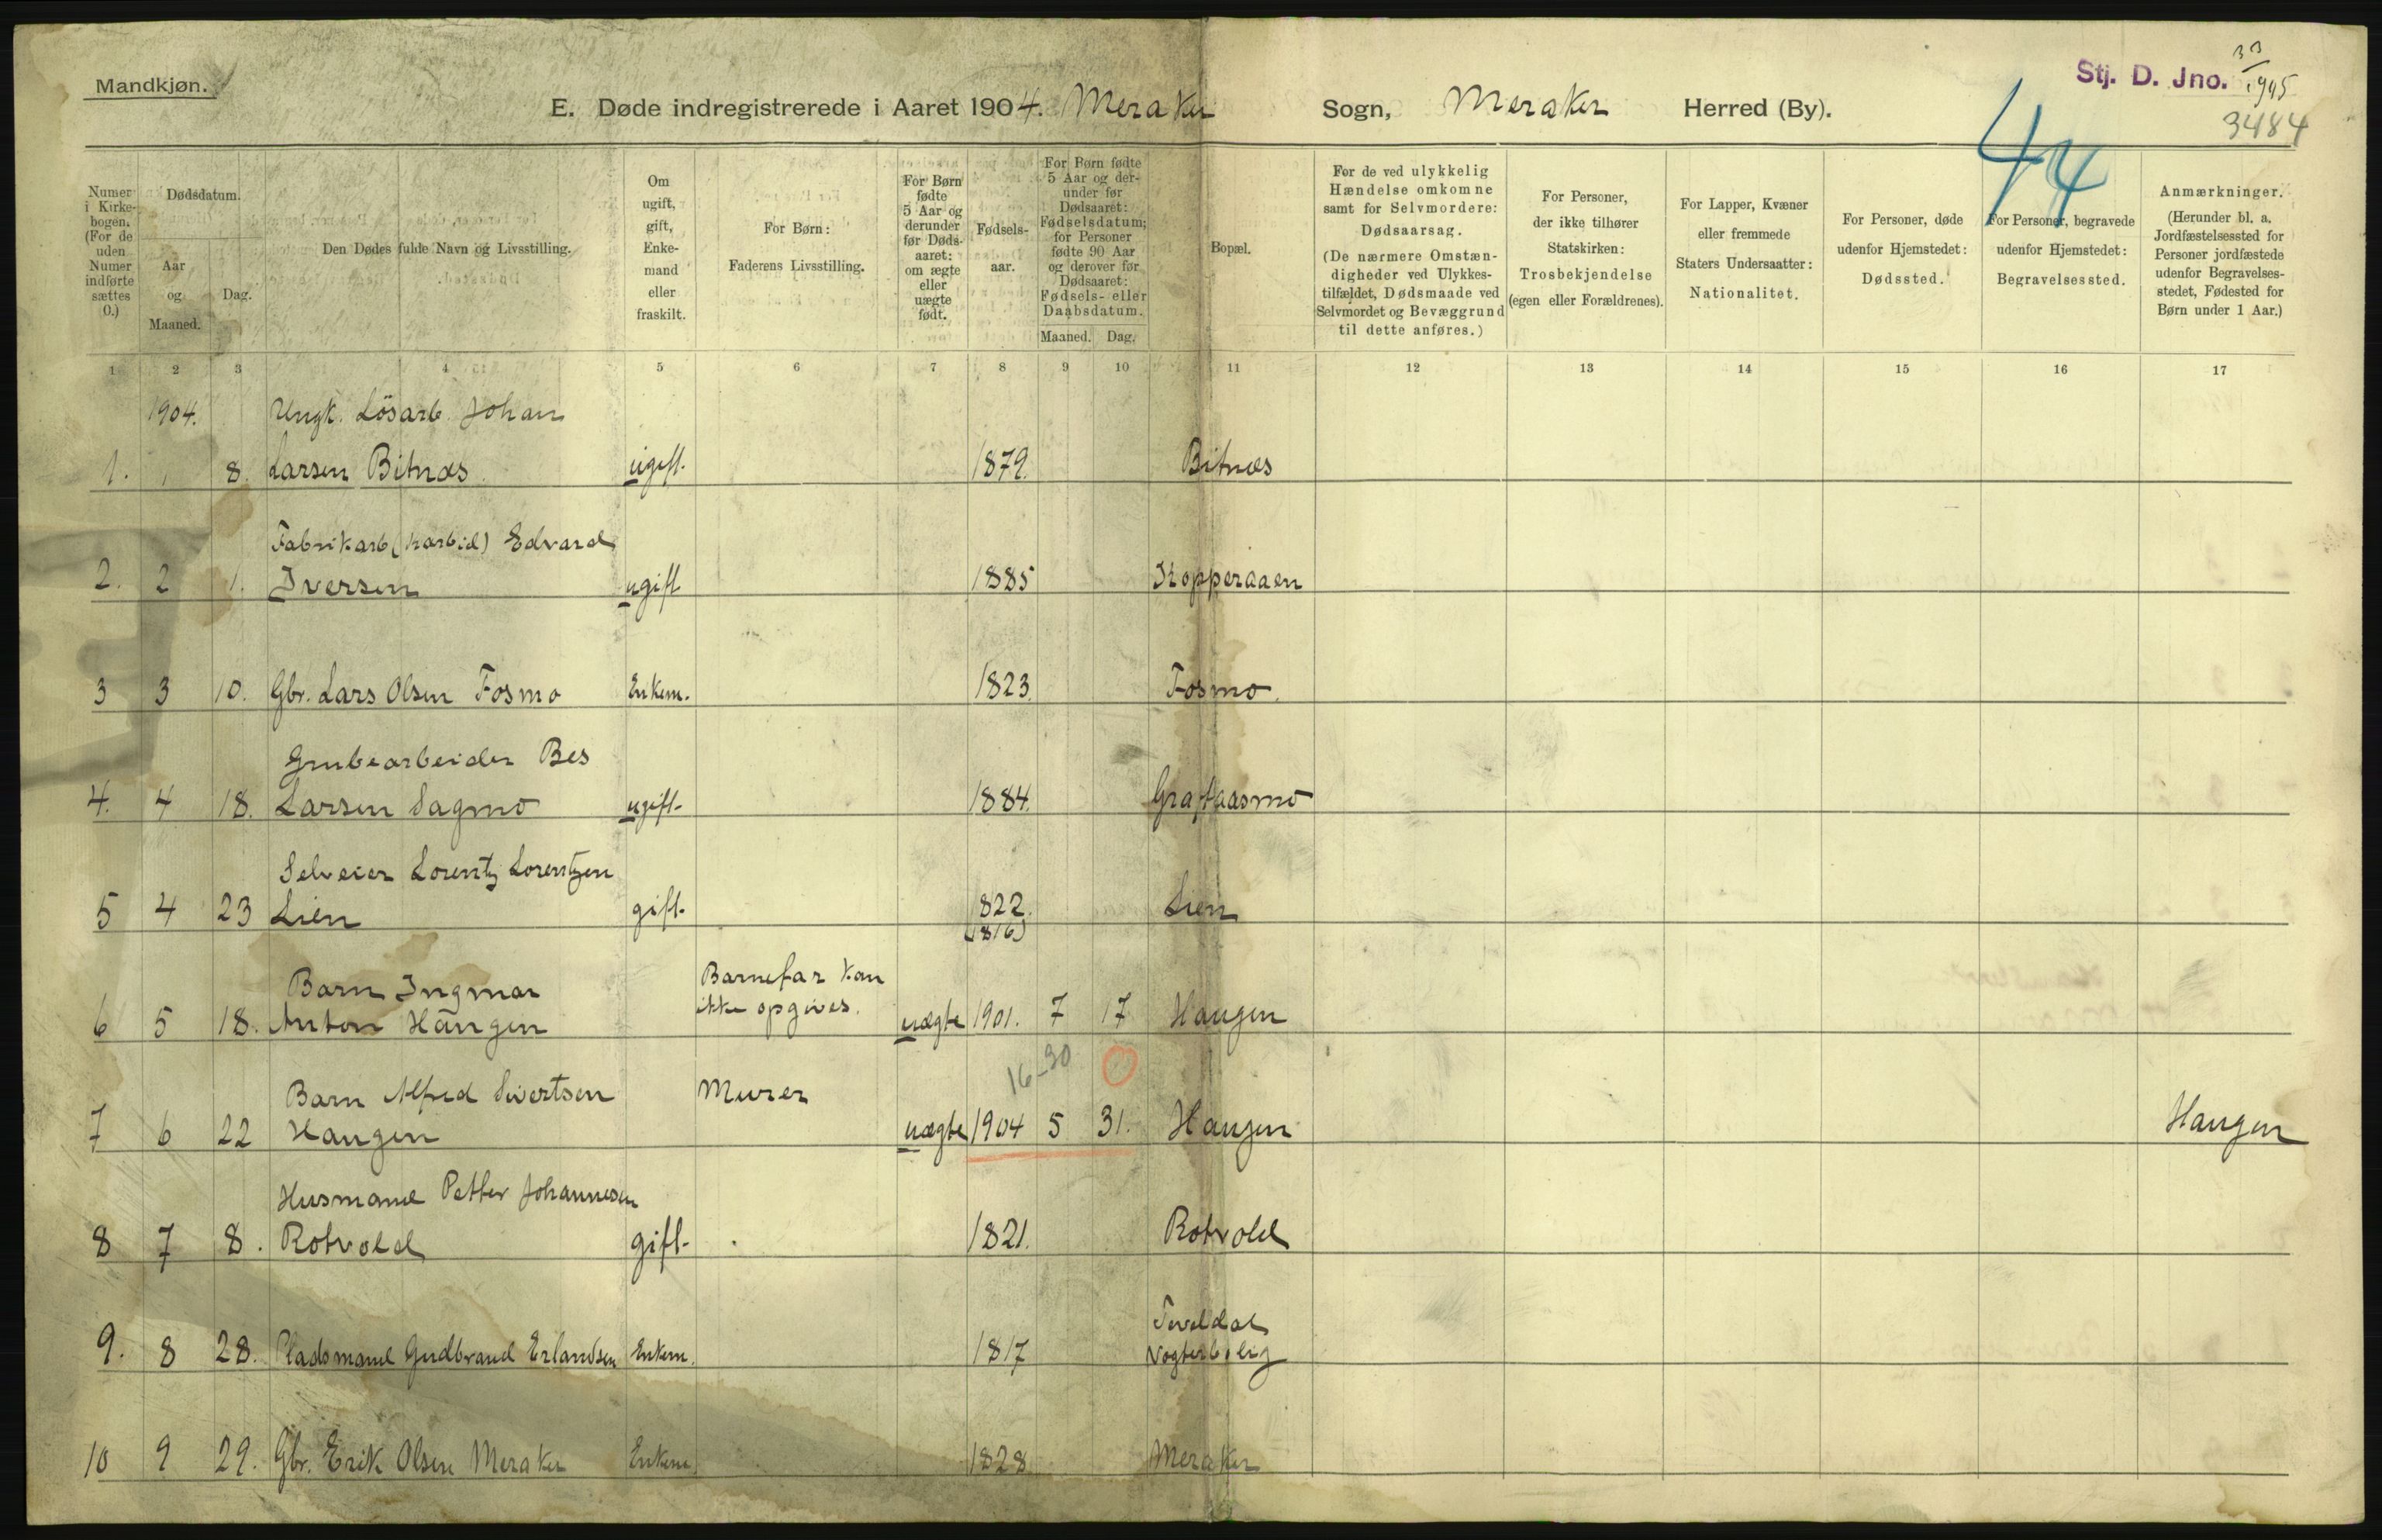 Mandkjøn.
Stj. D. Jno. 33/1905
3484
44
E. Døde indregistrerede i Aaret 1904. Meraker Sogn, Meraker Herred (By).
Numer i Kirkebogen. (For de uden Numer indførte sættes 0.)
Dødsdatum.
Aar og Maaned.
Dag.
Den Dødes fulde Navn og Livsstilling.
Om ugift, gift, Enkemand eller fraskilt.
For Børn: Faderens Livsstilling.
For Børn fødte 5 Aar og derunder før Dødsaaret: om ægte eller uægte født.
Fødselsaar.
For Børn fødte 5 Aar og derunder før Dødsaaret: Fødselsdatum; for Personer fødte 90 Aar og derover før Dødsaaret: Fødsels- eller Daabsdatum.
Maaned. Dag.
Bopæl.
For de ved ulykkelig Hændelse omkomne samt for Selvmordere: Dødsaarsag. (De nærmere Omstændigheder ved Ulykkestilfældet, Dødsmaade ved Selvmordet og Bevæggrund til dette anføres.)
For Personer, der ikke tilhører Statskirken: Trosbekjendelse (egen eller Forældrenes).
For Lapper, Kvæner eller fremmede Staters Undersaatter: Nationalitet.
For Personer, døde udenfor Hjemstedet: Dødssted.
For Personer, begravede udenfor Hjemstedet: Begravelsessted.
Anmærkninger. (Herunder bl. a. Jordfæstelsessted for Personer jordfæstede udenfor Begravelsesstedet, Fødested for Børn under 1 Aar.)
1 2 3 4 5 6 7 8 9 10 11 12 13 14 15 16 17
1904. Ungk. Lösarb. Johan
1. 1 8. Larsen Bitnæs ugift. 1879. Bitnæs
Fabrikarb (karbid) Edvard
2. 2 1. Iversen ugift 1885 Kopperaaen
3 3 10. Gbr. Lars Olsen Fosmo Enkem. 1823. Fosmo.
Grubearbeider Bes
4. 4 18. Larsen Sagmo ugift- 1884. Graftaasmo
Selveier Lorentz Lorentzen
5 4 23 Lien gift- 1822. Lien
(1816)
Barn Ingmar Barnefar kan
6 5 18. Anton Haugen ikke opgives. uægte 1901. 7 17 Haugen
16-30
Barn Alfred Sivertsen Murer
7 6 22 Haugen uægte 1904 5 31. Haugen Haugen
Husmand Petter Johannesen
8 7 8. Rotvold gift- 1821. Rotvold
Teveldal
9. 8 28. Pladsmand Gudbrand Erlandsen Enkem. 1817 Vogterbolig
10 9 29. Gbr. Erik Olsen Meraker Enkem. 1828 Meraker